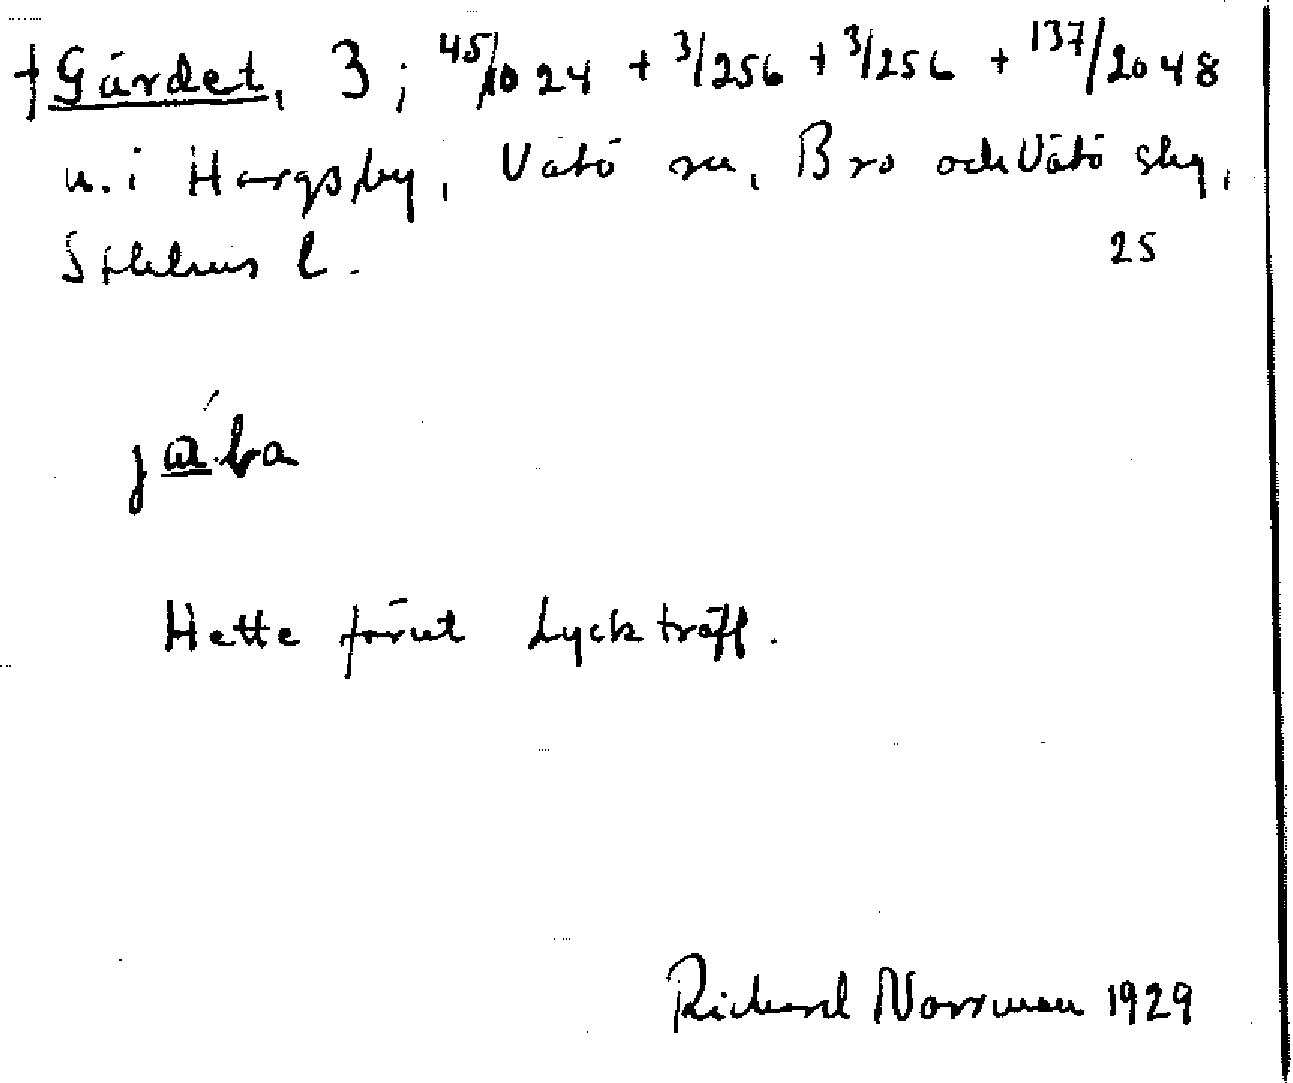 †Gärdet, 3; 45/1024 + 3/256 + 3/256 + 137/2048
u. i Hargsby, Vätö sn, Bro och Vätö skg,
Sthlms l. 25
Hette förut Lyckträff.
Richard Norrman 1929